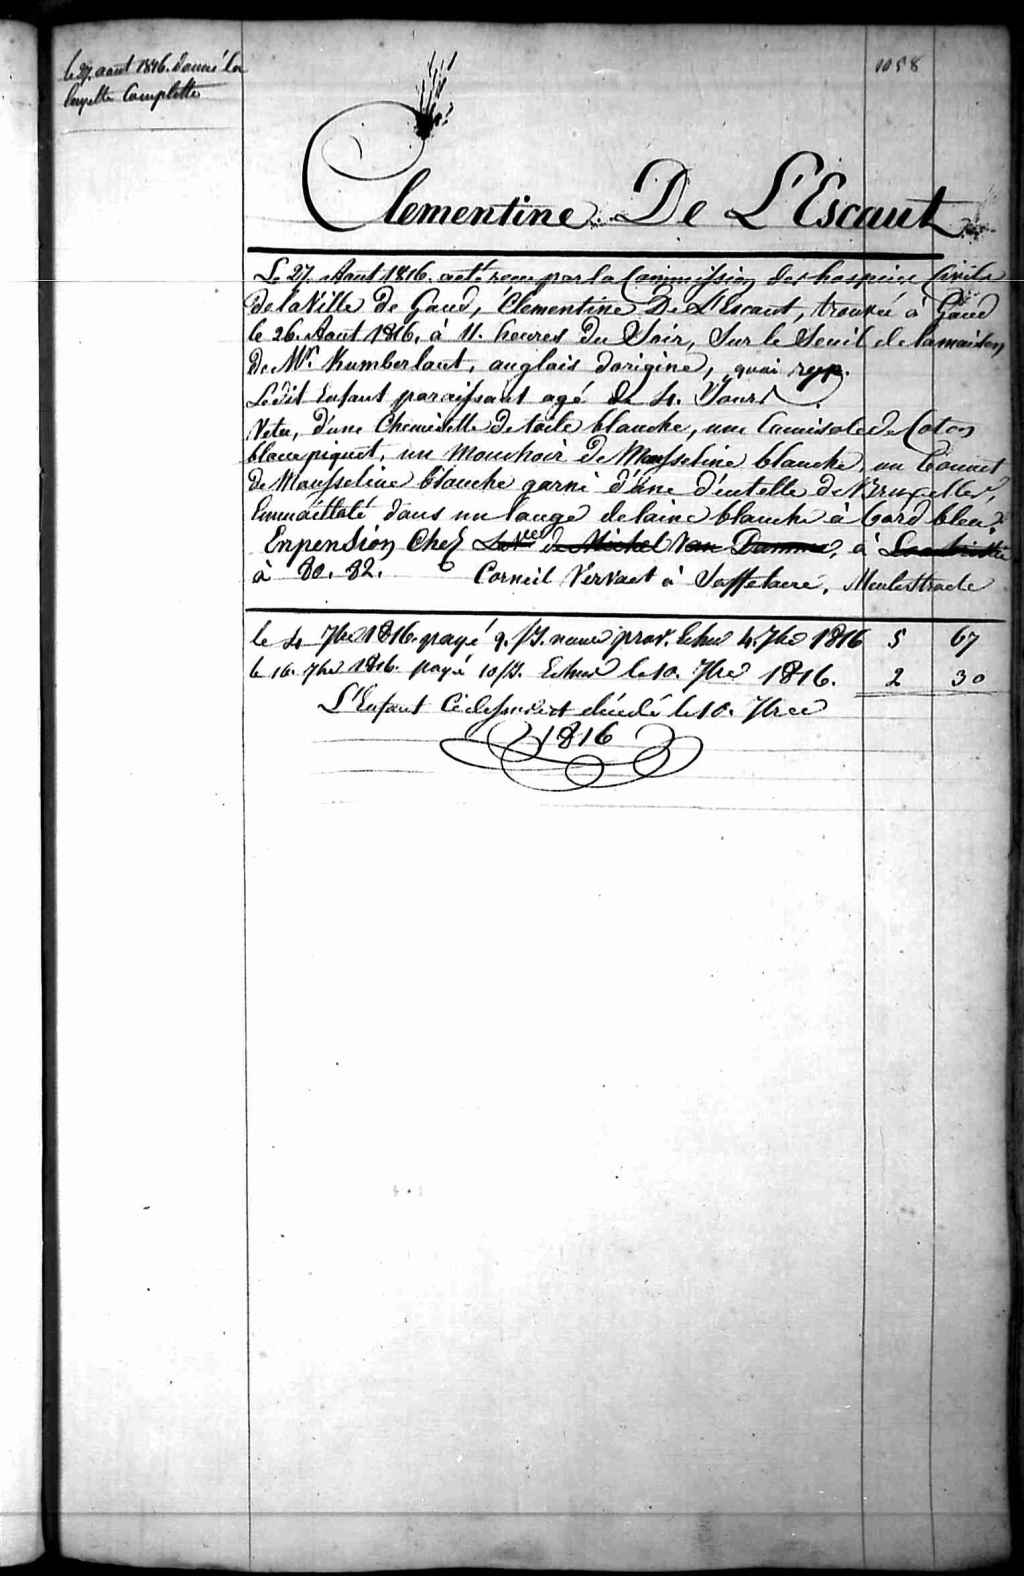 le 27. aout 1816. donné la
layette Complette
1058
Clementine De L'Escaut
Le 27. Aout 1816. a eté recu par la Commission des hospices Civils
de la Ville de Gand, Clementine De L'Escaut, trouvée à Gand
le 26. Aout 1816. à 11. heures du Soir, Sur le Seuil de la maison
de Mr. Kumberlant, anglais d'origine, quai
Ledit Enfant paraissant agé de 4. Jours
Vetu, d'une Chemisette de toile blanche, une Camisole de Coton
blanc piquet, un Mouchoir de Mousseline blanche, un bonnet
de Mousseline blanche garni d'une d'entelle de Bruxelles,
Emmaillotté dans un lange de laine blanche à bord bleu.
En pension Chez de Michel Van Damme, à
à 80. 82. Corneil Vervaet à Saffelaere, Meulestraete
le 4 7bre 1816. payé 9. fs. nource prov. Echue 4. 7bre 1816 5 67
le 16. 7bre 1816. payé 10 fs. Echue le 10. 7bre 1816. 2 30
L'Enfant Cidessus est décédé le 10. 7bre
1816